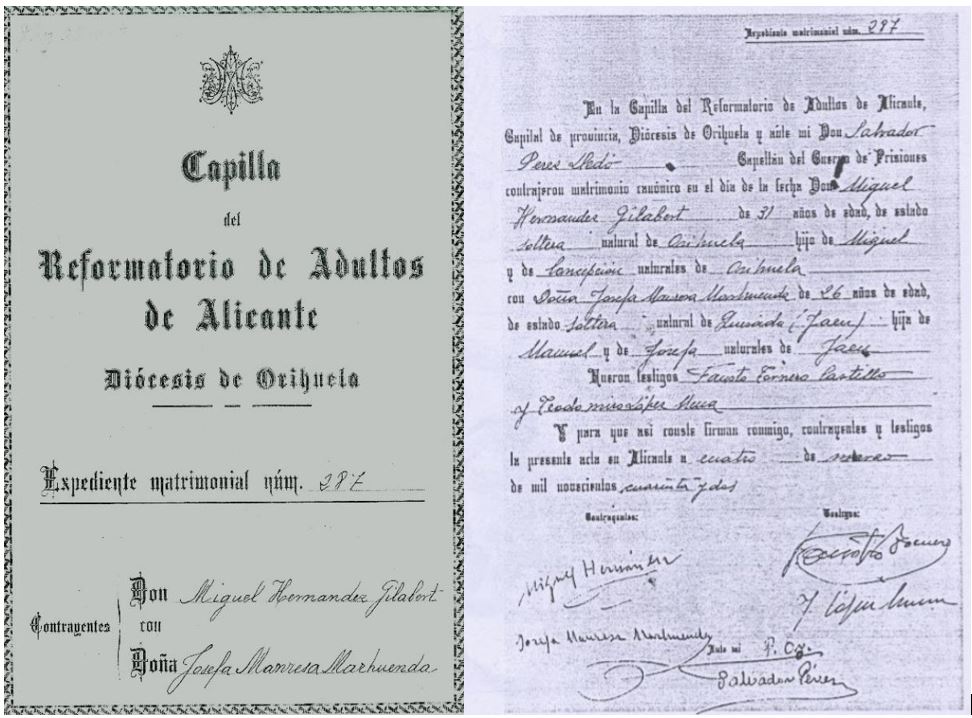 Capilla
del
Reformatorio de Adultos
de Alicante
Diócesis de Orihuela
Expediente matrimonial núm. 287
Contrayentes
Don Miguel Hernandez Gilabert
con
Doña Josefa Manresa Marhuenda
Expediente matrimonial núm. 287
En la Capilla del Reformatorio de Adultos de Alicante,
Capital de provincia, Diócesis de Orihuela y ánte mi Don Salvador
Peres Lledó Capellán del Cuerpo de Prisiones
contrajeron matrimonio canónico en el día de la fecha Don Miguel
Hernandez Gilabert de 31 años de edad, de estado
soltera natural de Orihuela hijo de Miguel
y de Concepción naturales de Orihuela
con Doña Josefa Manresa Marhuenda de 26 años de edad,
de estado soltera natural de Quesada (Jaen) hija de
Manuel y de Josefa naturales de Jaen
Fueron testigos Fausto Tornero Castillo
y Teodomiro López Mena
Y para que así conste firman conmigo, contrayentes y testigos
la presente acta en Alicante a cuatro de marzo
de mil novecientos cuarenta y dos
Contrayentes: Testigos:
Miguel Hernández
Fausto Tornero
T López Mena
Josefa Manresa Marhuenda
Ante mi
Salvador Pérez